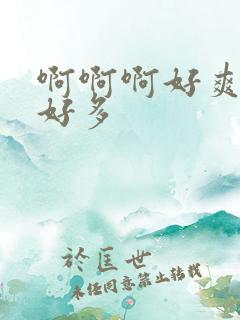 啊啊啊好爽
好多
於匡世
未经同意禁止转载